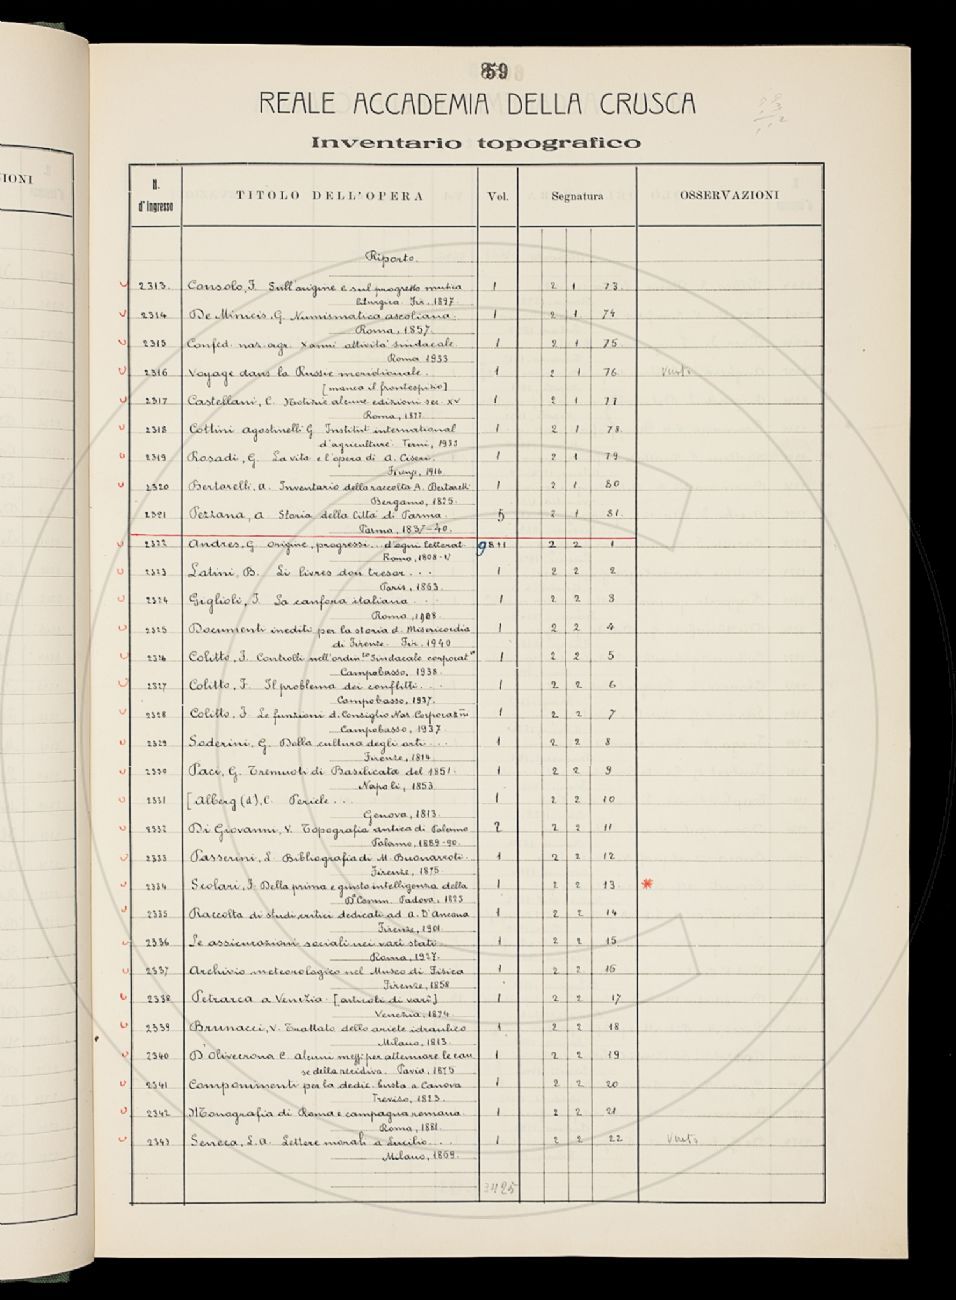 IONI
59
REALE ACCADEMIA DELLA CRUSCA
Inventario topografico
N. d'Ingresso TITOLO DELL'OPERA Vol. Segnatura OSSERVAZIONI
Riporto.
2313. Consolo, F. Sull'origine e sul progresso musica 1 2 1 73.
liturgica. Fir., 1897.
2314 De Minicis, G. Numismatica ascoliana. 1 2 1 74
Roma, 1857.
2315 Confed. naz. agr. X anni attività sindacale 1 2 1 75
Roma 1933
2316 Voyage dans la Russie meridionale. 1 2 1 76
[manca il frontespizio]
2317 Castellani, C. Notizie alcune edizioni sec. XV 1 2 1 77
Roma, 1877.
2318 Cottini Agostinelli G. Institut international 1 2 1 78
d'agriculture. Terni, 1933
2319 Rosadi, G. La vita e l'opera di A. Ciseri. 1 2 1 79
Firenze, 1916.
2320 Bertarelli, A. Inventario della raccolta A. Bertarelli 1 2 1 80
Bergamo, 1825.
2321 Pezzana, A Storia della Città di Parma. 5 2 1 81.
Parma, 1837-40.
2322 Andres, G. Origine, progressi... d'ogni letterat. 9 8+1 2 2 1
Roma, 1808-
2323 Latini, B. Li livres dou tresor... 1 2 2 2
Paris, 1863.
2324 Giglioli, I. La canfora italiana... 1 2 2 3
Roma, 1908
2325 Documenti inediti per la storia d. Misericordia 1 2 2 4
di Firenze. Fir., 1940
2326 Colitto, F. Controlli nell'ordinto sindacale corporatvo 1 2 2 5
Campobasso, 1938.
2327 Colitto, F. Il problema dei conflitti... 1 2 2 6
Campobasso, 1937.
2328 Colitto, F. Le funzioni d. Consiglio Naz. Corporazni 1 2 2 7
Campobasso, 1937
2329 Soderini, G. Della cultura degli orti.... 1 2 2 8
Firenze, 1814.
2330 Paci, G. Tremuoti di Basilicata del 1851. 1 2 2 9
Napoli, 1853.
2331 [Alberg (d'), C. Pericle... 1 2 2 10
Genova, 1813.
2332 Di Giovanni, V. Topografia antica di Palermo 2 2 2 11
Palermo, 1889-90.
2333 Passerini, L. Bibliografia di M. Buonarroti. 1 2 2 12
Firenze, 1875.
2334 Scolari, F. Della prima e giusta intelligenza della 1 2 2 13. *
Da Comm. Padova, 1823
2335 Raccolta di studi critici dedicati ad A. D'Ancona 1 2 2 14
Firenze, 1901.
2336 Le assicurazioni sociali nei vari stati. 1 2 2 15
Roma, 1927.
2337 Archivio meteorologico nel Museo di Fisica 1 2 2 16
Firenze, 1858
2338 Petrarca a Venezia. [articoli di vari] 1 2 2 17
Venezia, 1874
2339 Brunacci, V. Trattato dello ariete idraulico 1 2 2 18
Milano, 1813.
2340 D'Olivecrona C. Alcuni mezzi per attenuare le cau 1 2 2 19
se della recidiva. Pavia, 1875
2341 Componimenti per la dedic. busto a Canova 1 2 2 20
Treviso, 1823.
2342 Monografia di Roma e campagna romana. 1 2 2 21
Roma, 1881.
2343 Seneca, L. A. Lettere morali a Lucilio.... 1 2 2 22
Milano, 1869.
3425